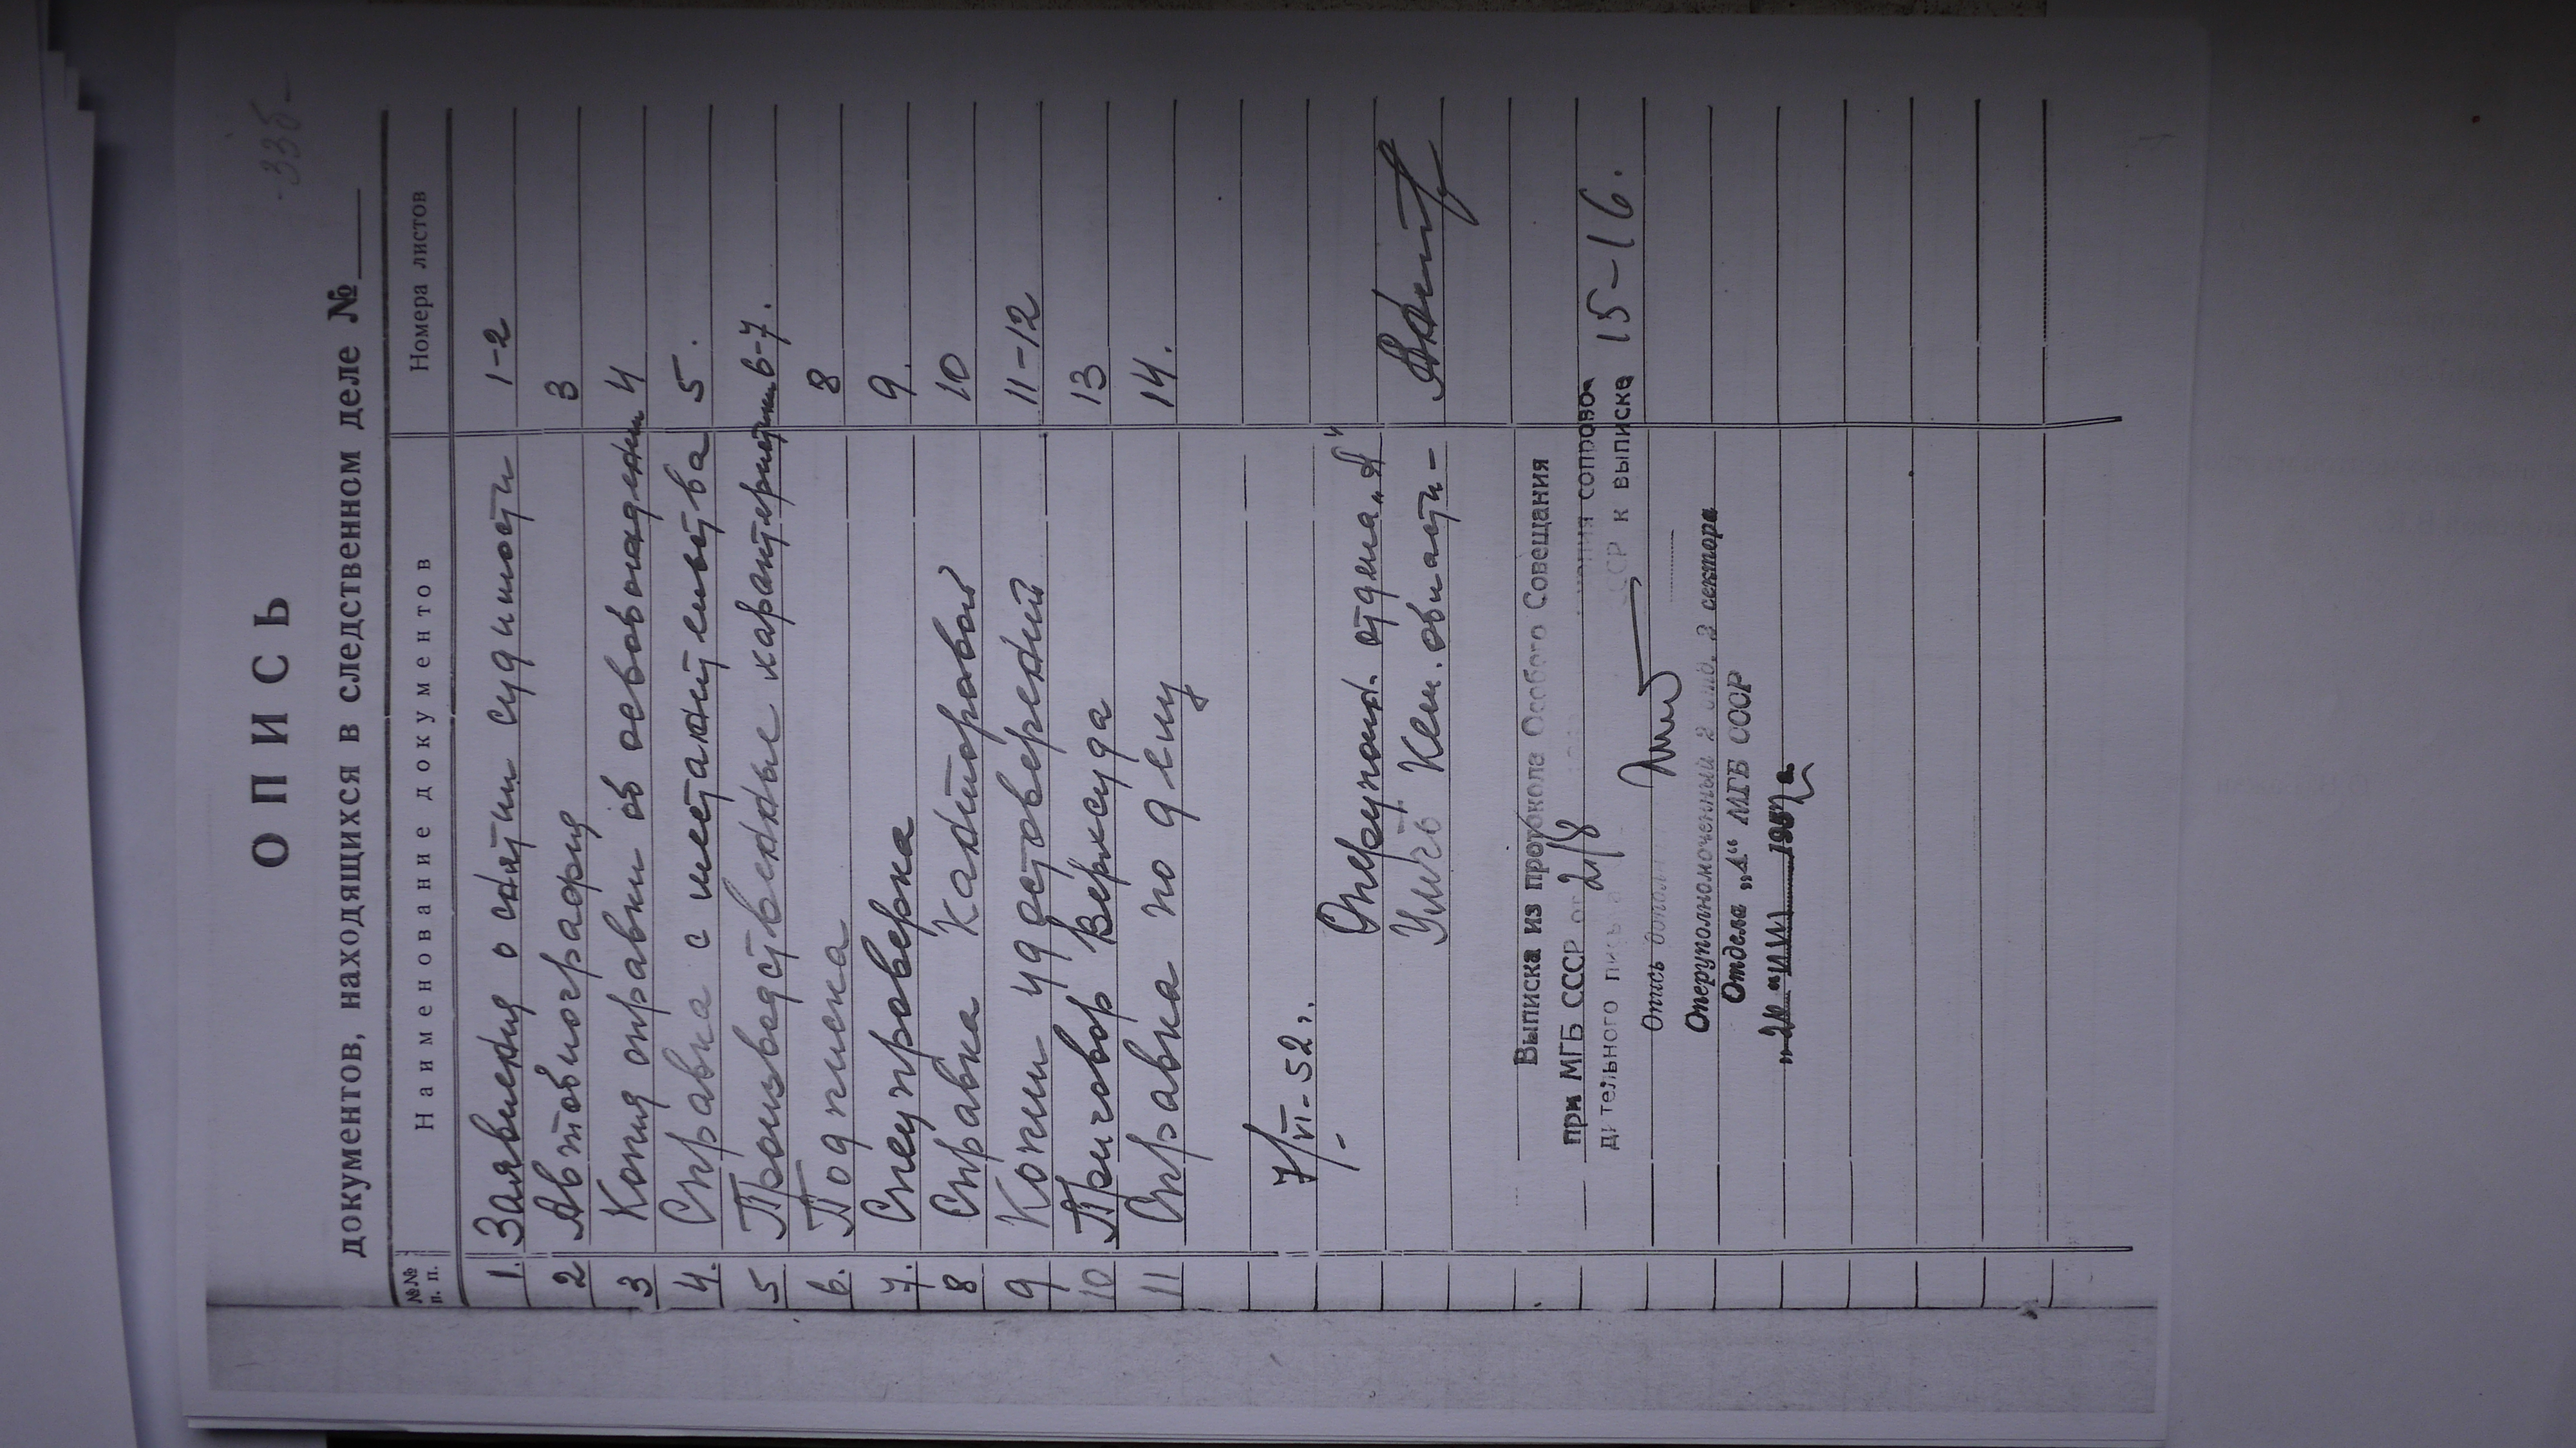 -335-
ОПИСЬ
документов, находящихся в следственном деле №
№№ п. п. Наименование документов Номера листов
1. Заявления о снятии судимости 1-2
2 Автобиография 3
3 Копия справки об освобождении 4
4. Справка с местажительства 5.
5 Производственные характеристики 6-7.
6. Подписка 8
7. Спецпроверка 9.
8 Справка Канторовой 10
9 Копии удостоверений 11-12
10 Приговор Верхсуда 13
11 Справка по делу 14.
7/VI-52г.
Оперуполн. отдела „А"
УМГБ Кем. области -
Выписка из протокола Особого Совещания
при МГБ СССР от 2/8 копия сопрово
дительного письма СССР к выписке 15-16.
Опись дополнил
Оперуполномоченный 2 отд. 3 сектора
Отдела „А“ МГБ СССР